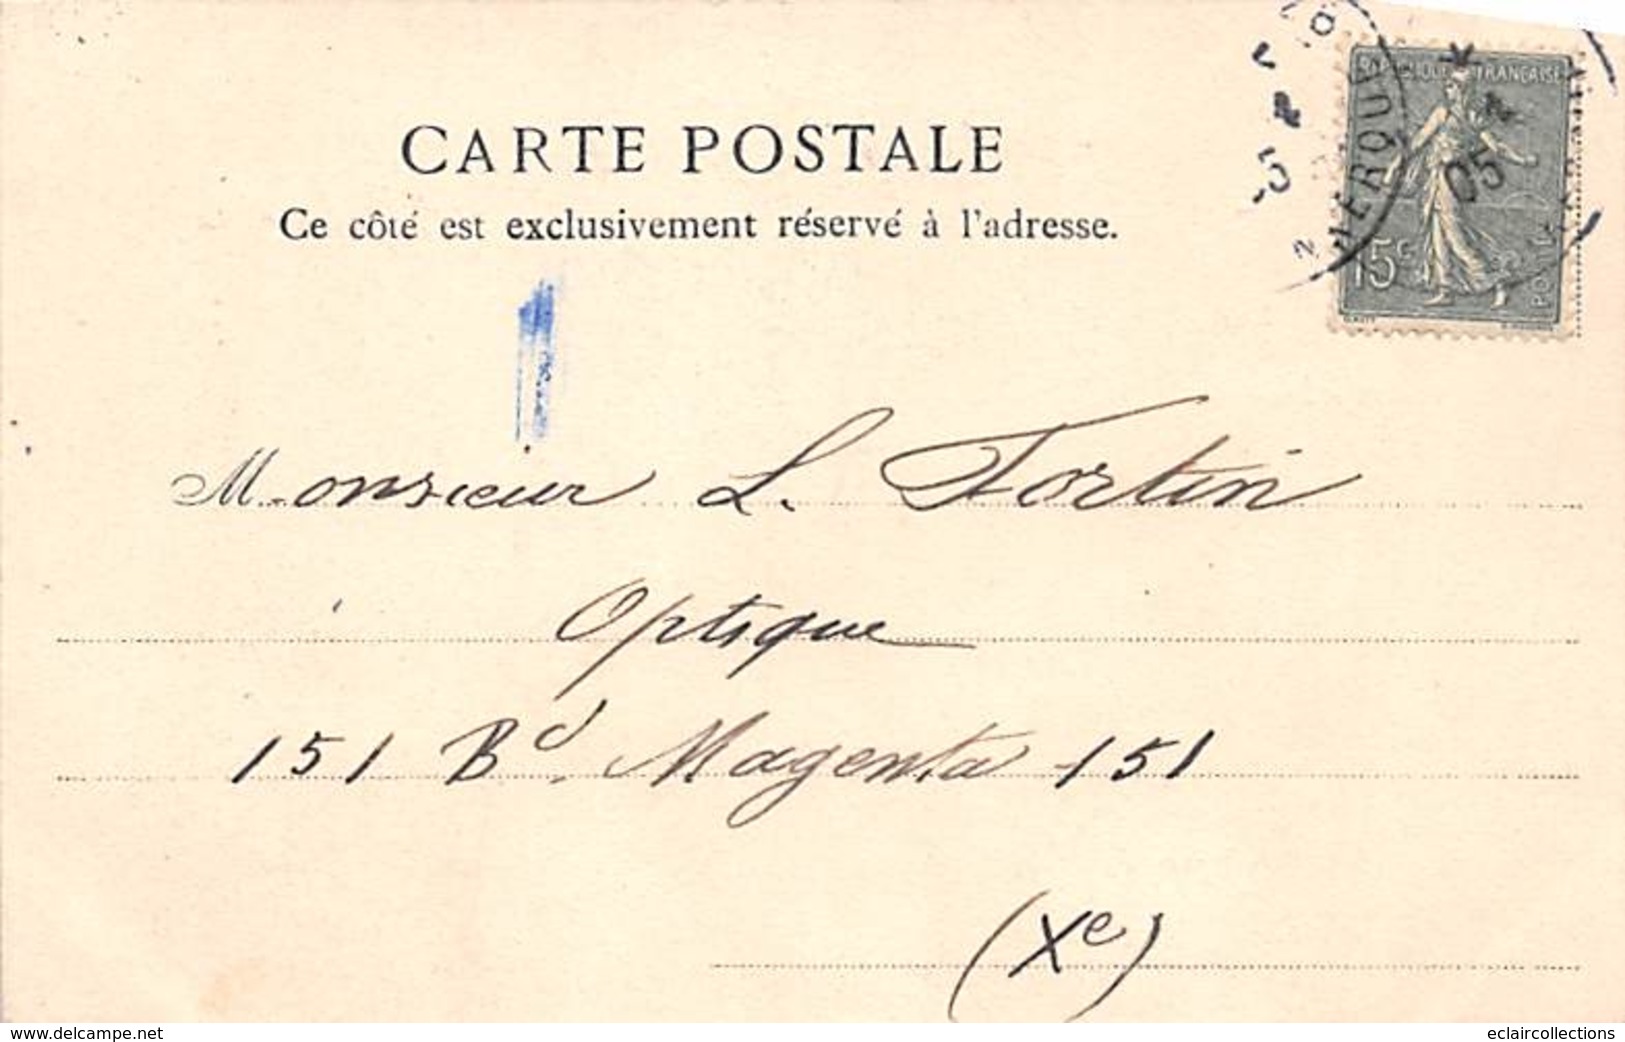 CARTE POSTALE
Ce côté est exclusivement réservé à l'adresse.
FRANÇAISE
15c
05
Monsieur L. Fortin
Optique
151 Bd. Magenta 151
(Xe)
www.delcampe.net
eclaircollections